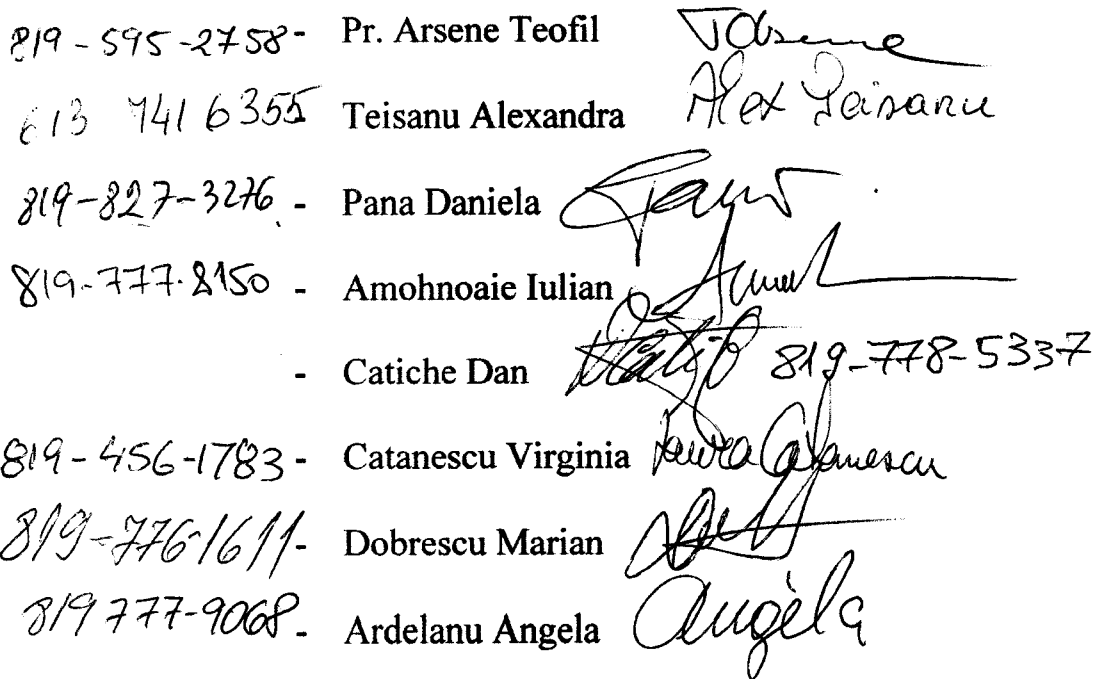 819-595-2758- Pr. Arsene Teofil
613 741 6355 Teisanu Alexandra Alex Teisanu
819-827-3276 - Pana Daniela
819-777-8150 - Amohnoaie Iulian
- Catiche Dan 819-778-5337
819-456-1783- Catanescu Virginia Catanescu
819-776-1611- Dobrescu Marian
819 777-9068- Ardelanu Angela Angela